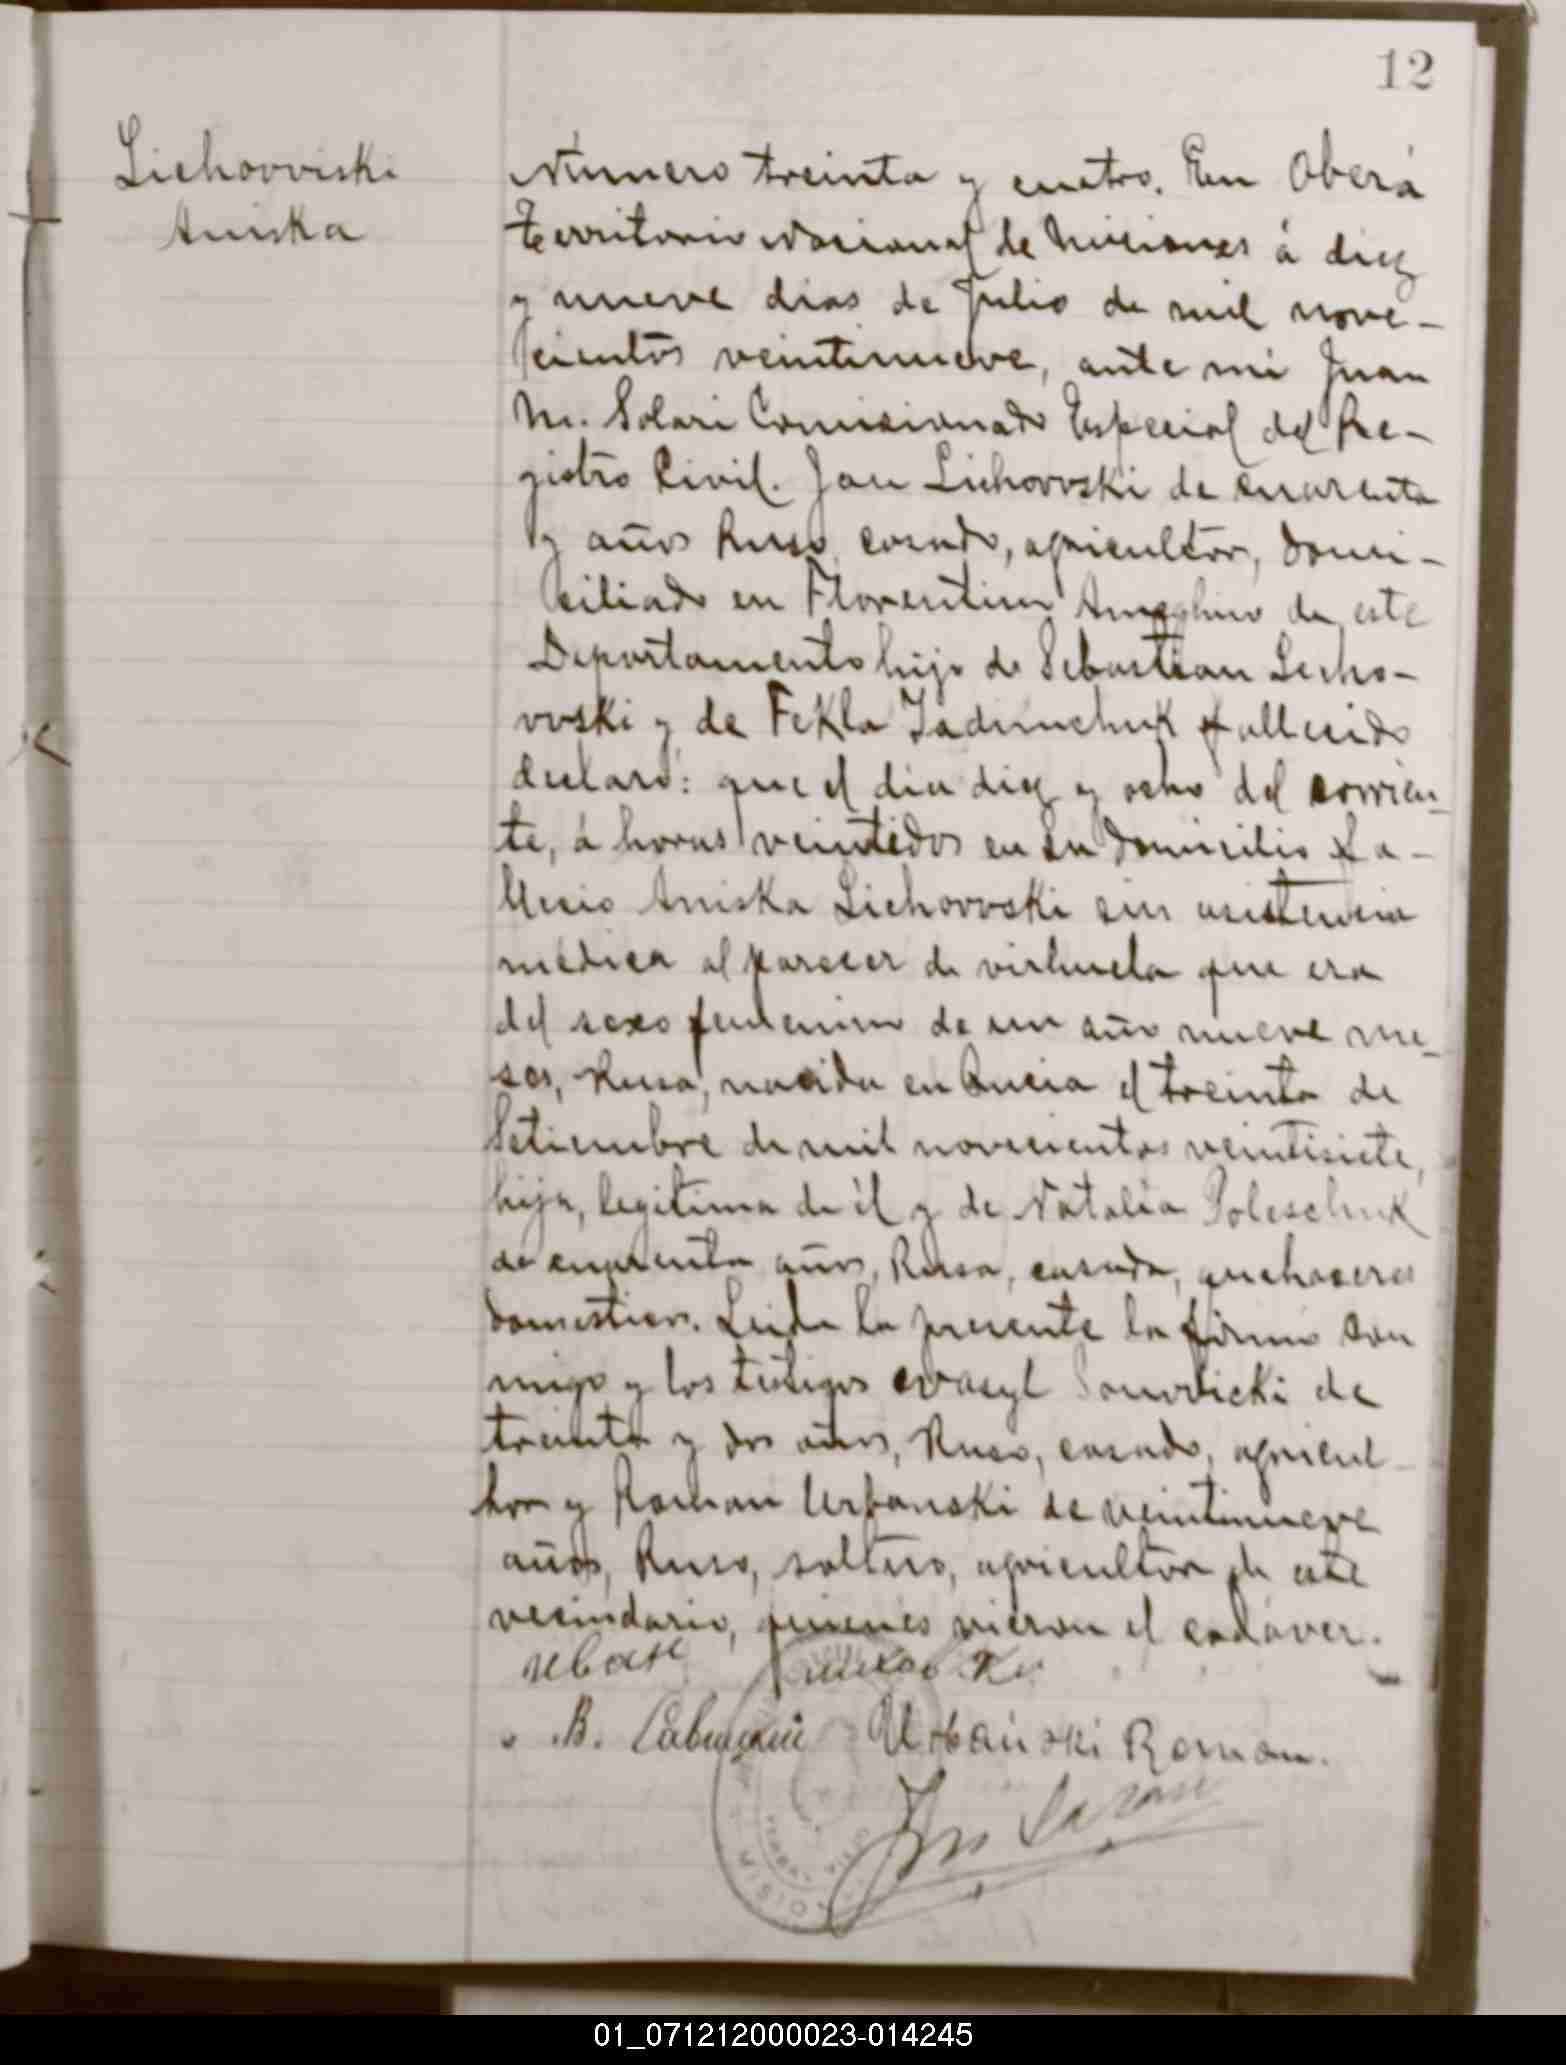 12
Lichovviski
Aniska
Número treinta y cuatro. En Oberá
territorio Nacional de Misiones á diez
y nueve dias de Julio de mil nove-
cientos veintinueve, ante mi Juan
M. Solari Comisionado Especial del Re-
gistro Civil. Jan Lichovvski de cuarenta
y años Ruso, casado, agricultor, domi-
ciliado en Florentino Ameghino de este
Departamento hijo de Sebastian Licho-
vvski y de Fekla fallecido
declaró: que el dia diez y ocho del corrien-
te, á horas veintidos en su domicilio fa-
llecio Aniska Lichovvski sin asistencia
médica al parecer de virhuela que era
del sexo femenino de un año nueve me-
ses, Rusa, nacida en Rucia el treinta de
Setiembre de mil novecientos veintisiete,
hija, legitima de él y de Natalia Poleschuk
de cuarenta años, Rusa, casada, quehaceres
domesticos. Leida la presente la firmó con
migo y los testigos vvasyl de
treinta y dos años, Ruso, casado, agricul-
tor y Roman Urbanski de veintinueve
años, Ruso, soltero, agricultor de este
vecindario, quienes vieron el cadáver.
B. Urbański Roman.
01_071212000023-014245